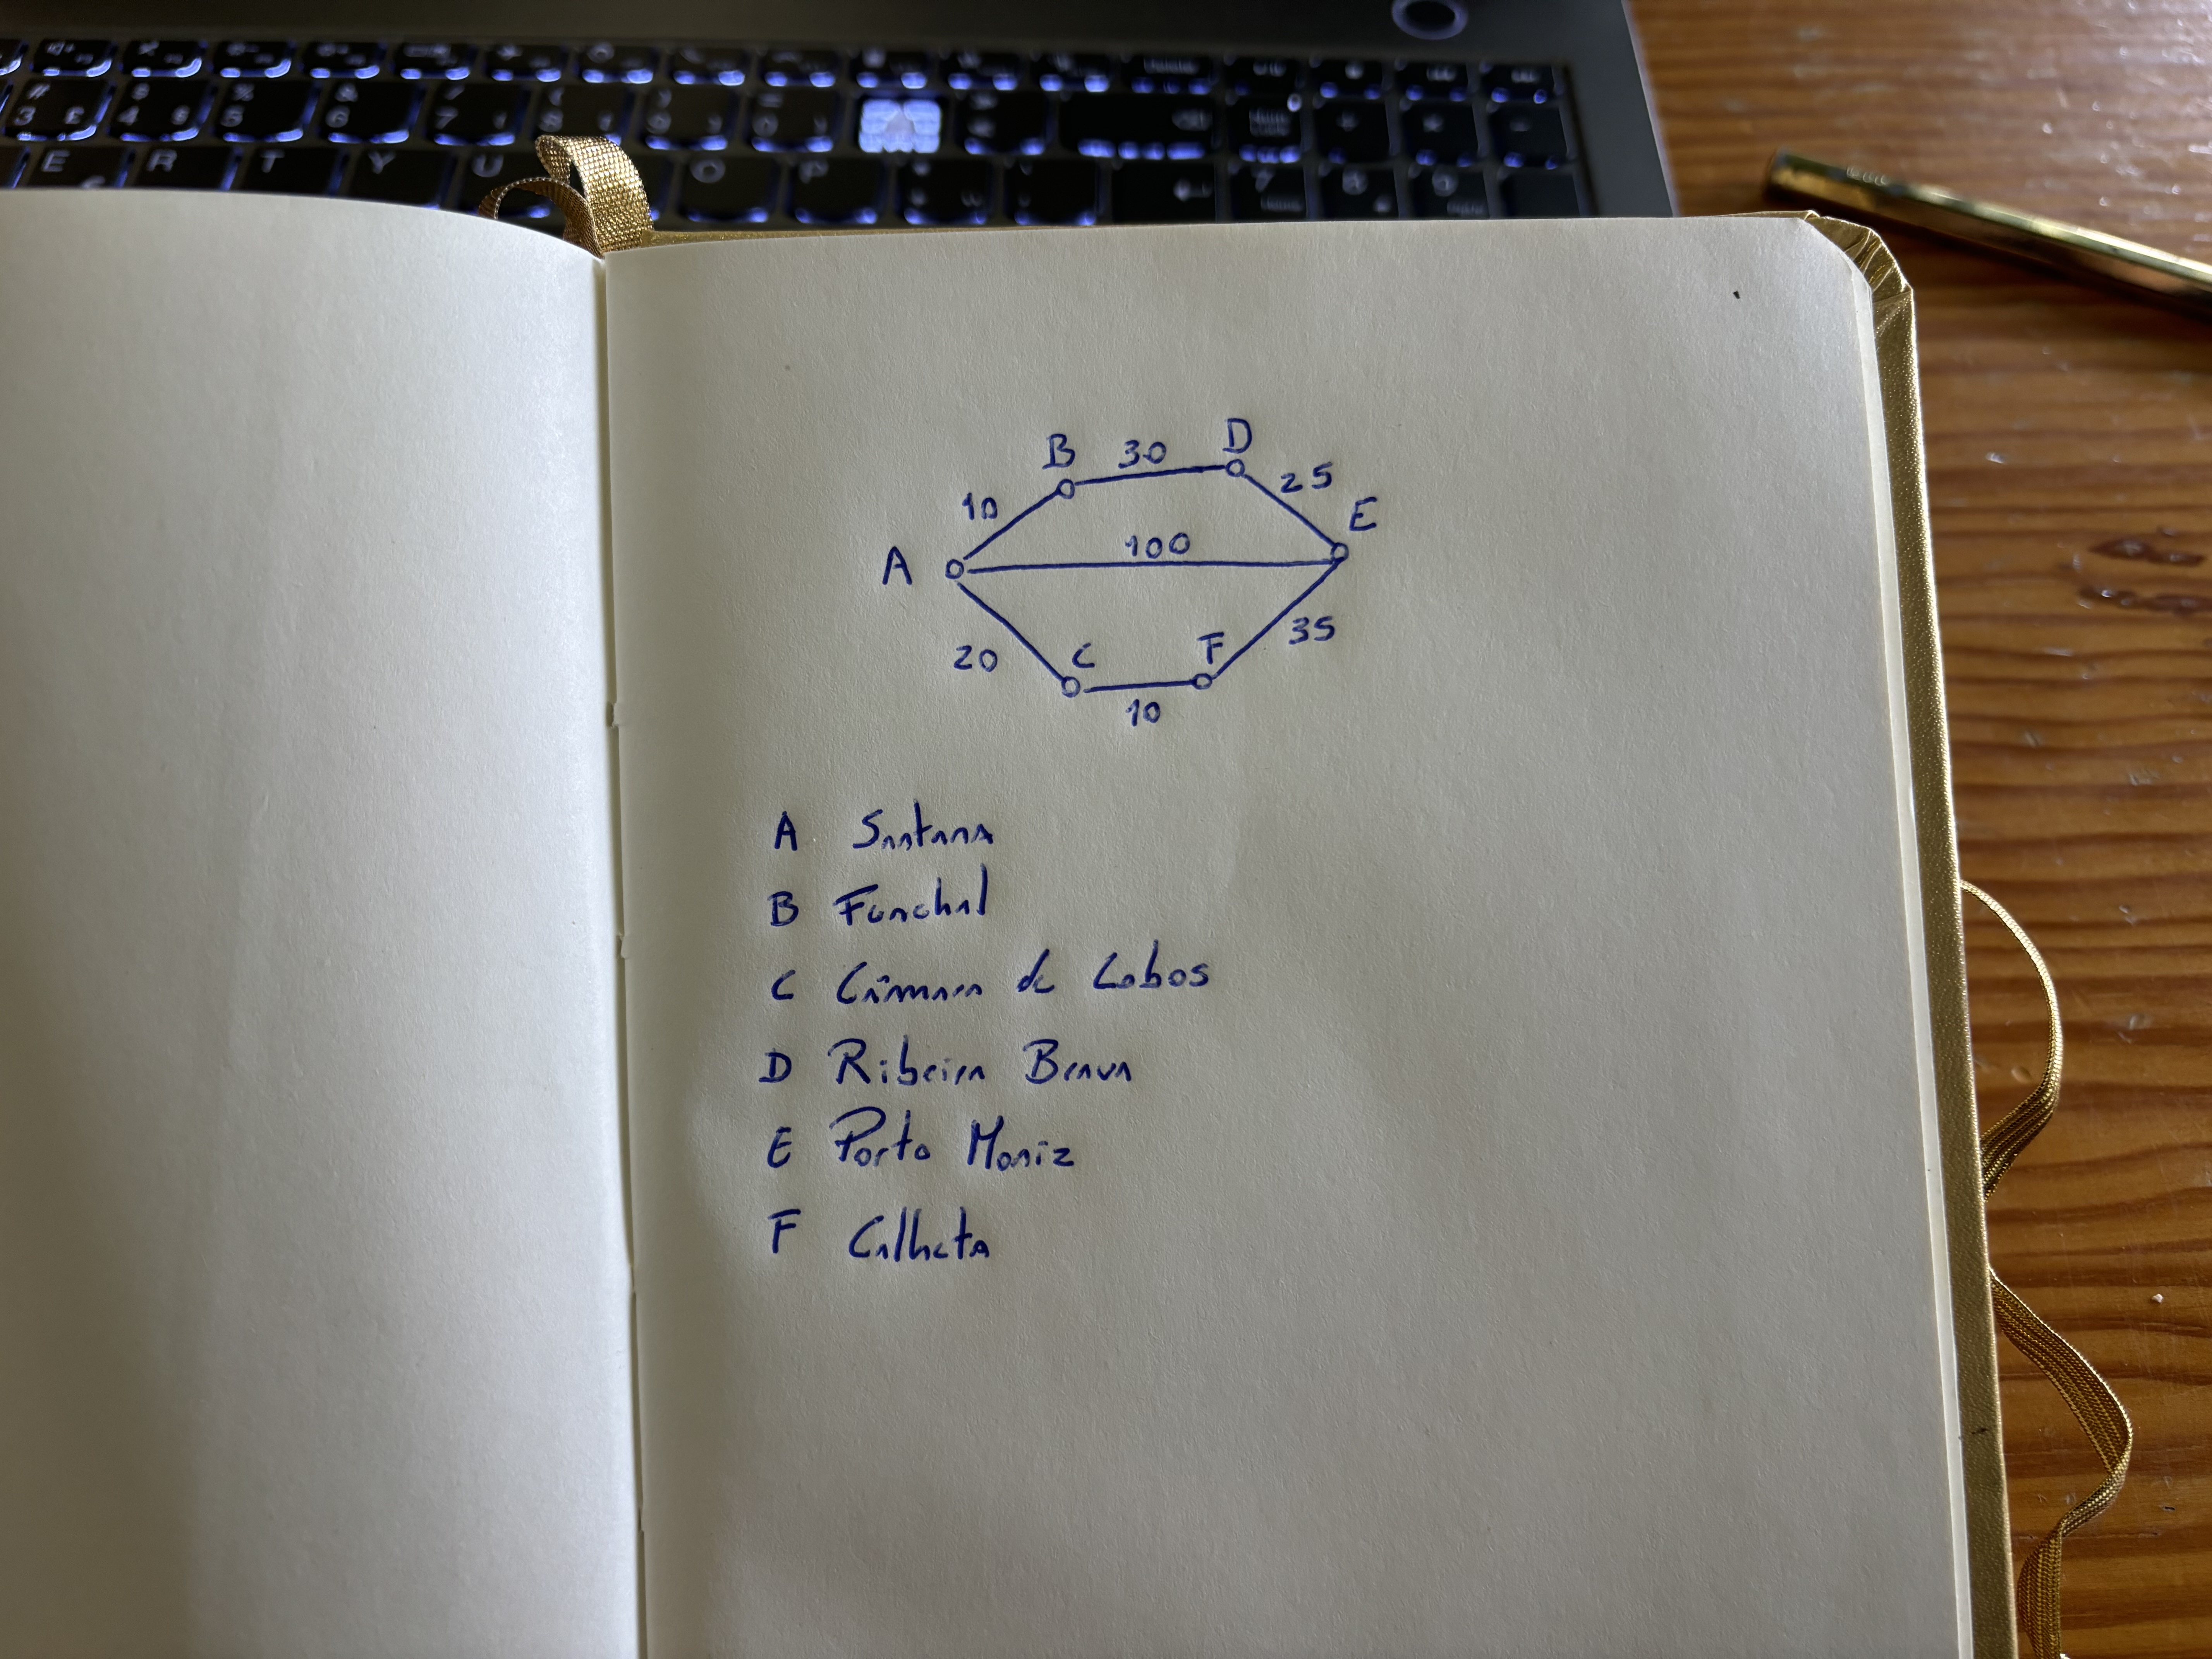 3 £ 4 § 5 6 7 8 9 0
E R T Y U O P 7 8 9
B 30 D
10 25
E
A 100
20 C F 35
10
A Santana
B Funchal
C Câmara de Lobos
D Ribeira Brava
E Porto Moniz
F Calheta